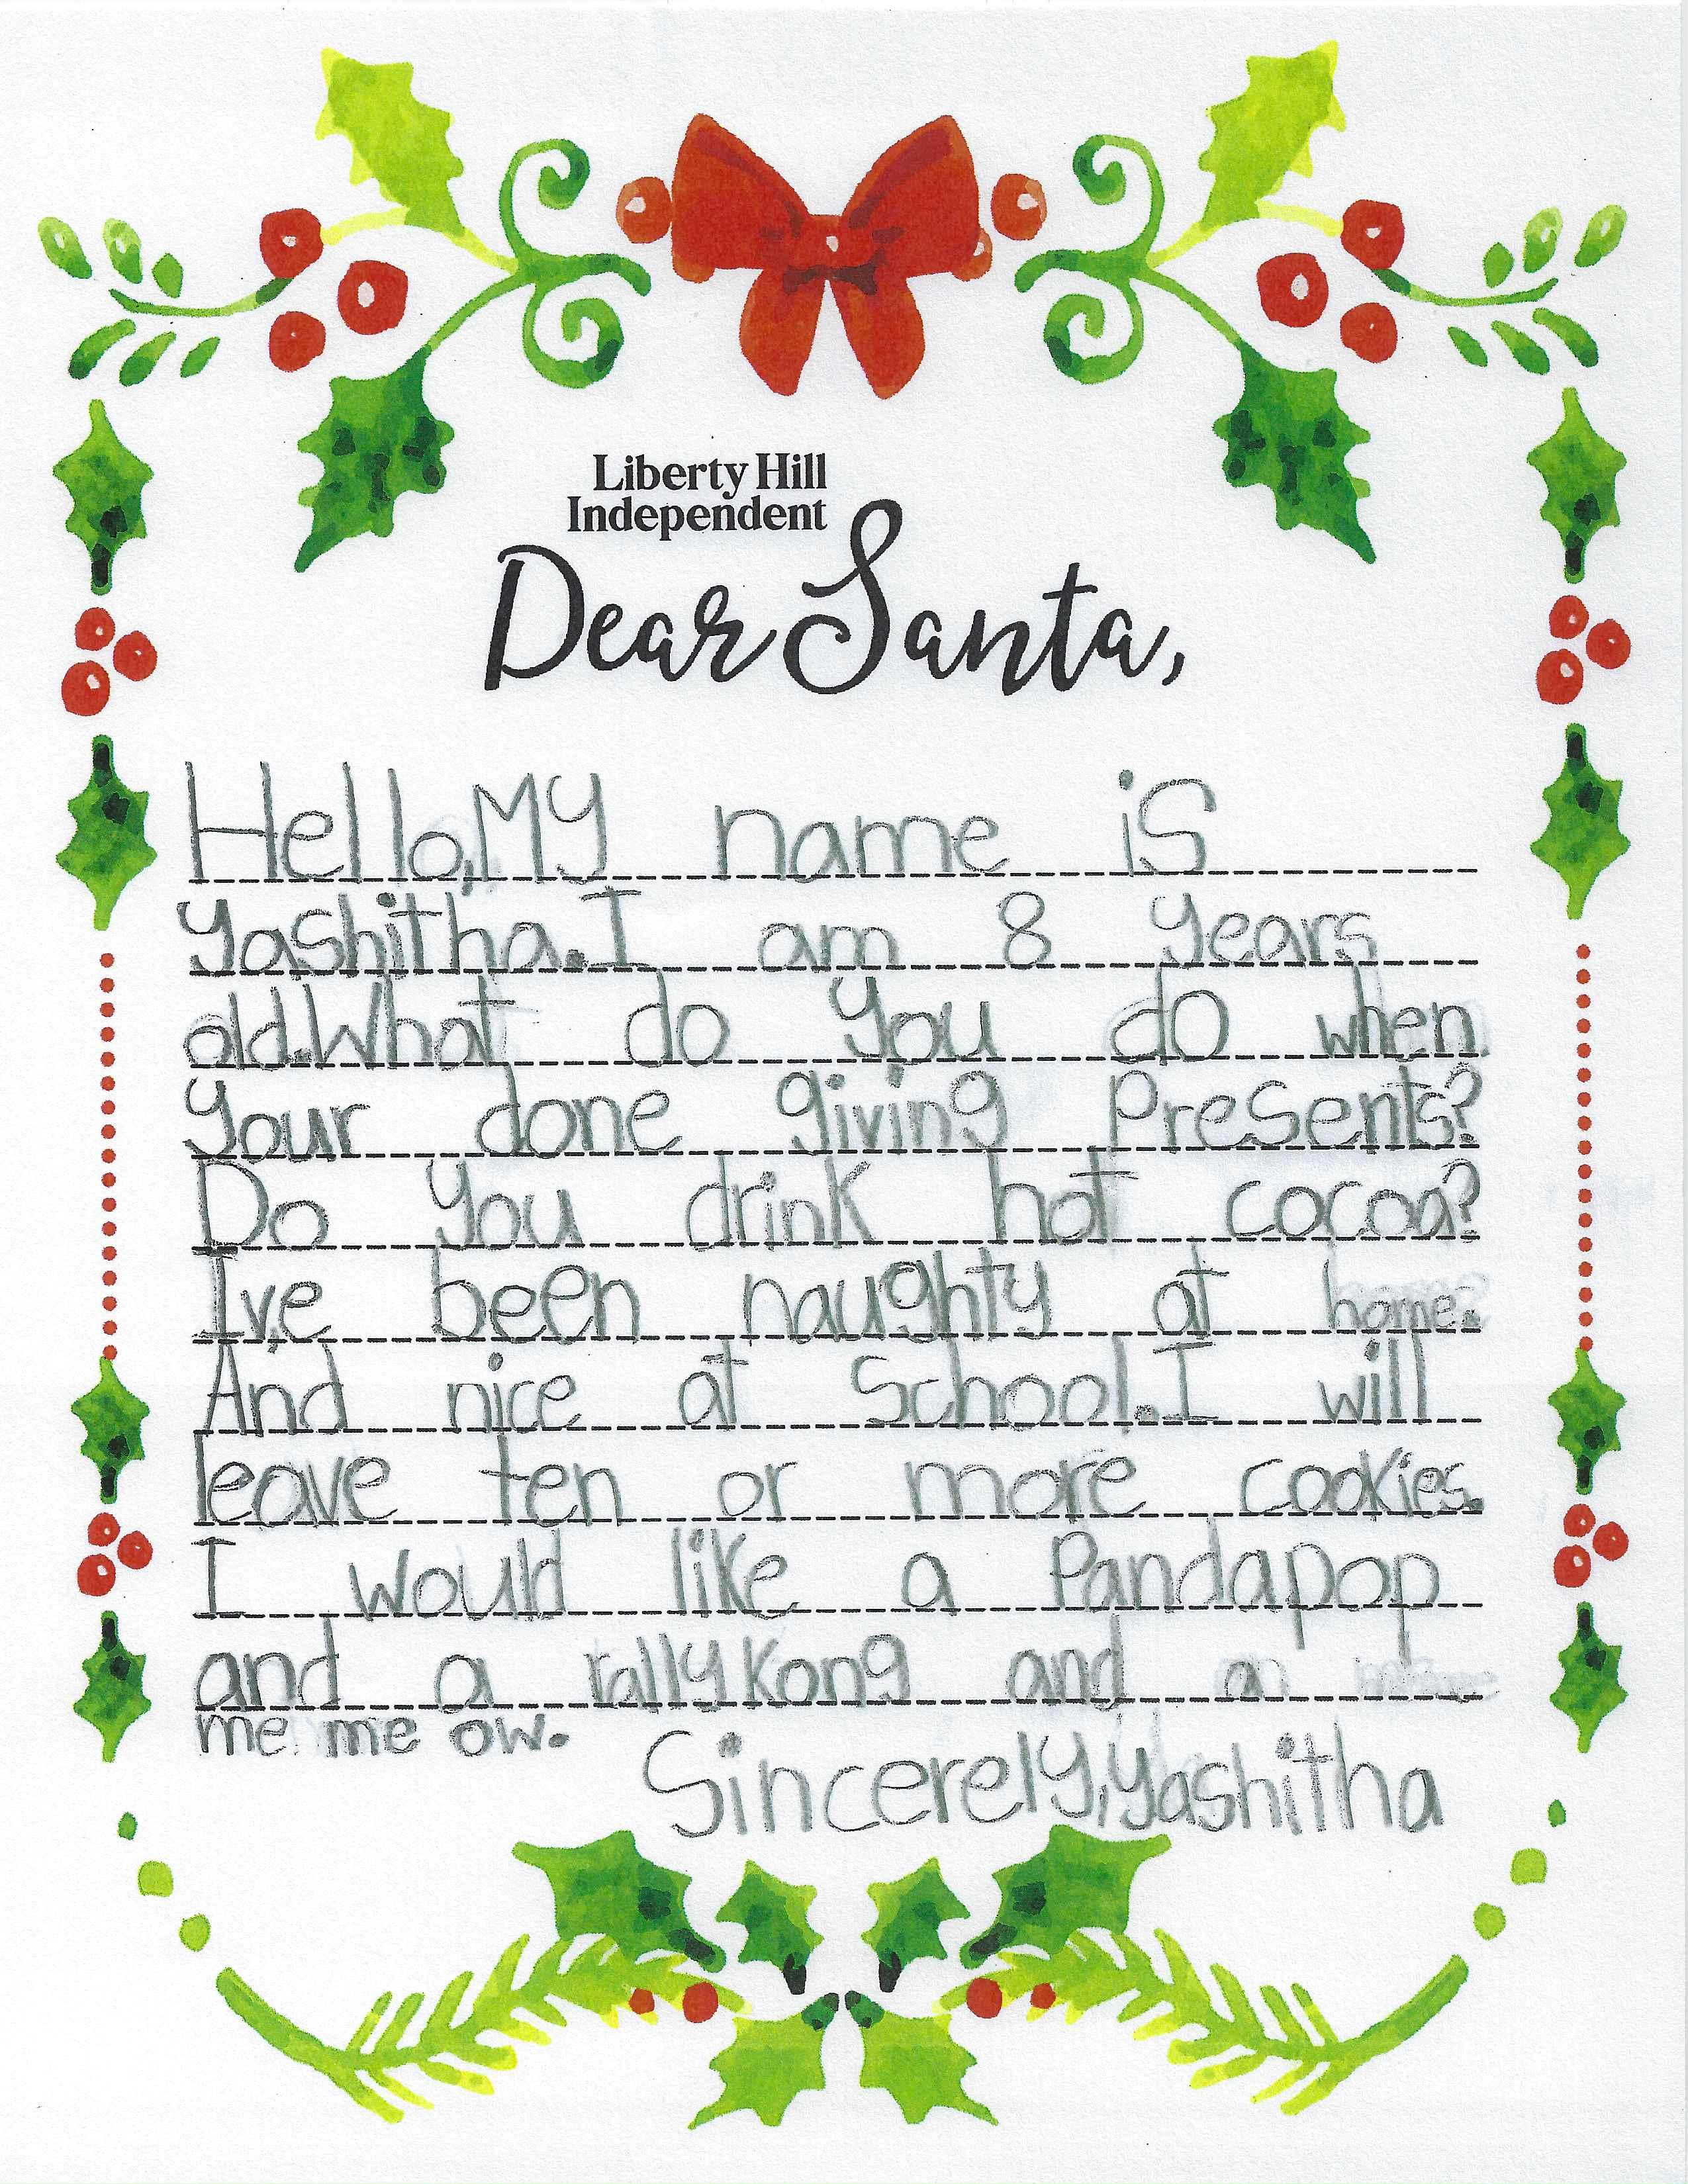 Liberty Hill
Independent
Dear Santa,
Hello, My name is
Yashitha. I am 8 years
old. What do you do when
your done giving Presents?
Do you drink hot cocoa?
Iv,e been naughty at home.
And nice at School. I will
leave ten or more cookies.
I would like a Pandapop
and a rally Kong and a
me me ow.
Sincerely, Yashitha